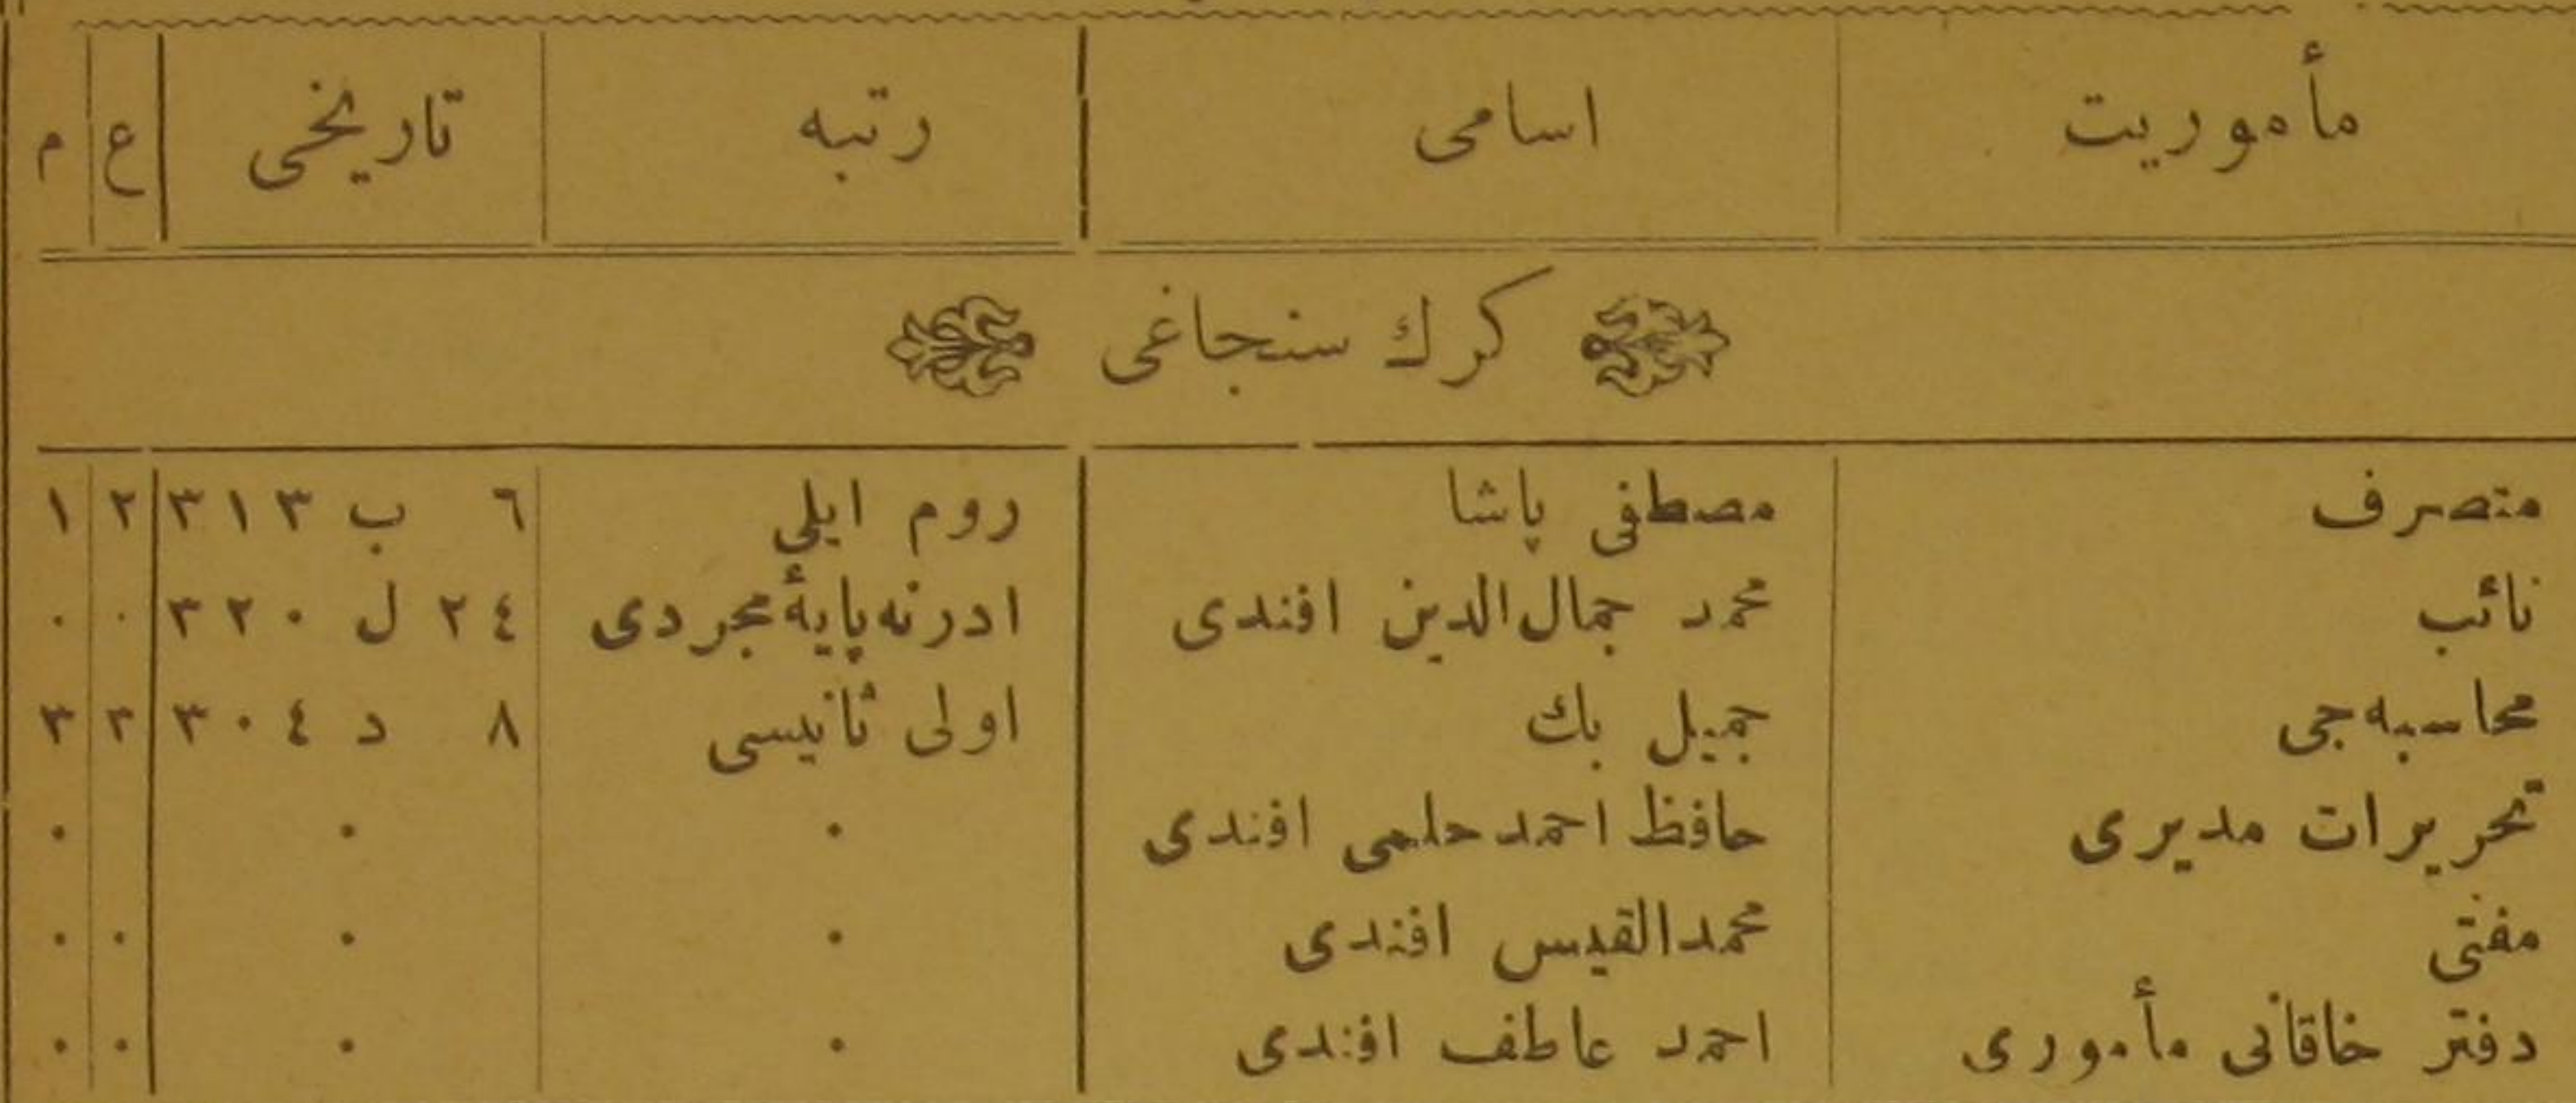 مأموريت اسامى رتبه تاريخى ع م
كرك سنجاغى
متصرف مصطفى پاشا روم ايلى ٦ ب ٣١٣ ٢ ١
نائب محمد جمال‌الدين افندى ادرنه پايۀ مجردى ٢٤ ل ٣٢٠ ٠ ٠
محاسبه‌جى جميل بك اولى ثانيسى ٨ د ٣٠٤ ٣ ٣
تحريرات مديرى حافظ احمد حلمى افندى ٠ ٠ ٠
مفتى محمد القيس افندى ٠ ٠ ٠ ٠
دفتر خاقانى مأمورى احمد عاطف افندى ٠ ٠ ٠ ٠